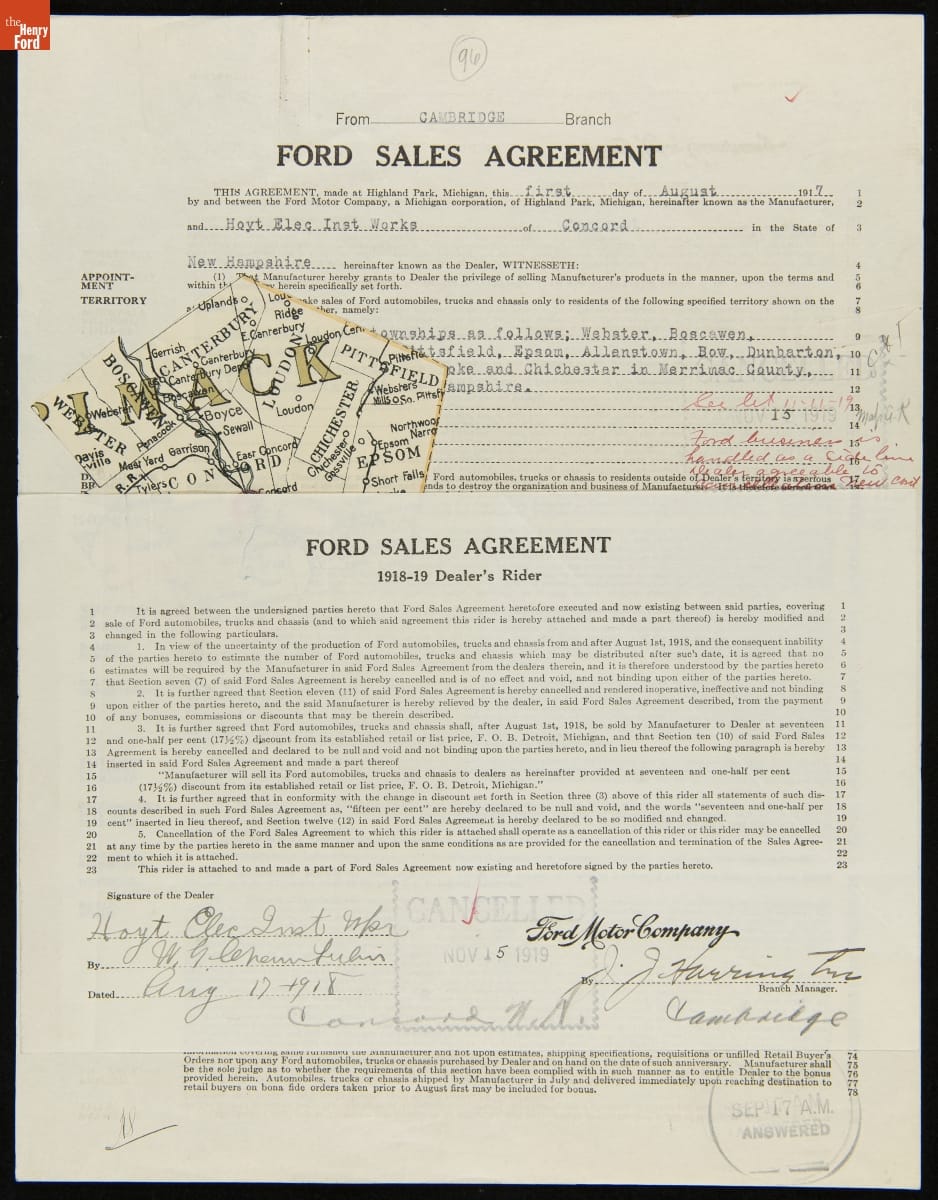 the
Henry
Ford
96
From CAMBRIDGE Branch
FORD SALES AGREEMENT
THIS AGREEMENT, made at Highland Park, Michigan, this first day of August 1917, 1
by and between the Ford Motor Company, a Michigan corporation, of Highland Park, Michigan, hereinafter known as the Manufacturer, 2
and Hoyt Elec Inst Works of Concord in the State of 3
New Hampshire hereinafter known as the Dealer, WITNESSETH: 4
APPOINT-
MENT
(1) That Manufacturer hereby grants to Dealer the privilege of selling Manufacturer's products in the manner, upon the terms and 5
within herein specifically set forth. 6
TERRITORY
make sales of Ford automobiles, trucks and chassis only to residents of the following specified territory shown on the 7
namely: 8
townships as follows; Webster, Boscawen, 9
Pittsfield, Epsom, Allenstown, Bow, Dunbarton, 10
oke and Chichester in Merrimac County, 11
ampshire. 12
See let 11-11-19 13
NOV 15 1919
14
Ford business is 15
handled as a side line
Dealer agreeable to
New cont
Ford automobiles, trucks or chassis to residents outside of Dealer's territory is a serious 17
nds to destroy the organization and business of Manufacturer.
Uplands
Loudon
Ridge
CANTERBURY
E.Canterbury
Loudon Cent
Gerrish
Canterbury
Canterbury Depot
BOSCAWEN
Boscawen
LOUDON
PITTSFIELD
Pittsfield
MACK
Websters
Mills
So. Pittsf
Webster
WEBSTER
Boyce
Loudon
CHICHESTER
Sewall
Penacook
Northwood
Narro
Davis
ville
Mast Yard
Garrison
East Concord
Chichester
Gossville
Epsom
EPSOM
R.R.
Tylers
CONCORD
Concord
Short Falls
FORD SALES AGREEMENT
1918-19 Dealer's Rider
1 It is agreed between the undersigned parties hereto that Ford Sales Agreement heretofore executed and now existing between said parties, covering 1
2 sale of Ford automobiles, trucks and chassis (and to which said agreement this rider is hereby attached and made a part thereof) is hereby modified and 2
3 changed in the following particulars. 3
4 1. In view of the uncertainty of the production of Ford automobiles, trucks and chassis from and after August 1st, 1918, and the consequent inability 4
5 of the parties hereto to estimate the number of Ford automobiles, trucks and chassis which may be distributed after suc's date, it is agreed that no 5
6 estimates will be required by the Manufacturer in said Ford Sales Agreement from the dealers therein, and it is therefore understood by the parties hereto 6
7 that Section seven (7) of said Ford Sales Agreement is hereby cancelled and is of no effect and void, and not binding upon either of the parties hereto. 7
8 2. It is further agreed that Section eleven (11) of said Ford Sales Agreement is hereby cancelled and rendered inoperative, ineffective and not binding 8
9 upon either of the parties hereto, and the said Manufacturer is hereby relieved by the dealer, in said Ford Sales Agreement described, from the payment 9
10 of any bonuses, commissions or discounts that may be therein described. 10
11 3. It is further agreed that Ford automobiles, trucks and chassis shall, after August 1st, 1918, be sold by Manufacturer to Dealer at seventeen 11
12 and one-half per cent (17½%) discount from its established retail or list price, F. O. B. Detroit, Michigan, and that Section ten (10) of said Ford Sales 12
13 Agreement is hereby cancelled and declared to be null and void and not binding upon the parties hereto, and in lieu thereof the following paragraph is hereby 13
14 inserted in said Ford Sales Agreement and made a part thereof 14
15 "Manufacturer will sell its Ford automobiles, trucks and chassis to dealers as hereinafter provided at seventeen and one-half per cent 15
16 (17½%) discount from its established retail or list price, F. O. B. Detroit, Michigan." 16
17 4. It is further agreed that in conformity with the change in discount set forth in Section three (3) above of this rider all statements of such dis- 17
18 counts described in such Ford Sales Agreement as, "fifteen per cent" are hereby declared to be null and void, and the words "seventeen and one-half per 18
19 cent" inserted in lieu thereof, and Section twelve (12) in said Ford Sales Agreement is hereby declared to be so modified and changed. 19
20 5. Cancellation of the Ford Sales Agreement to which this rider is attached shall operate as a cancellation of this rider or this rider may be cancelled 20
21 at any time by the parties hereto in the same manner and upon the same conditions as are provided for the cancellation and termination of the Sales Agree- 21
22 ment to which it is attached. 22
23 This rider is attached to and made a part of Ford Sales Agreement now existing and heretofore signed by the parties hereto. 23
Signature of the Dealer
CANCELLED
Hoyt Elec Inst Wks
Ford Motor Company
NOV 15 1919
By W. G. Chamberlin
By J. J. Harrington
Branch Manager.
Dated Aug 17 1918
Concord N.H.
Cambridge
information covering same furnished the Manufacturer and not upon estimates, shipping specifications, requisitions or unfilled Retail Buyer's 74
Orders nor upon any Ford automobiles, trucks or chassis purchased by Dealer and on hand on the date of such anniversary. Manufacturer shall 75
be the sole judge as to whether the requirements of this section have been complied with in such manner as to entitle Dealer to the bonus 76
provided herein. Automobiles, trucks or chassis shipped by Manufacturer in July and delivered immediately upon reaching destination to 77
retail buyers on bona fide orders taken prior to August first may be included for bonus. 78
SEP 17 A.M.
ANSWERED